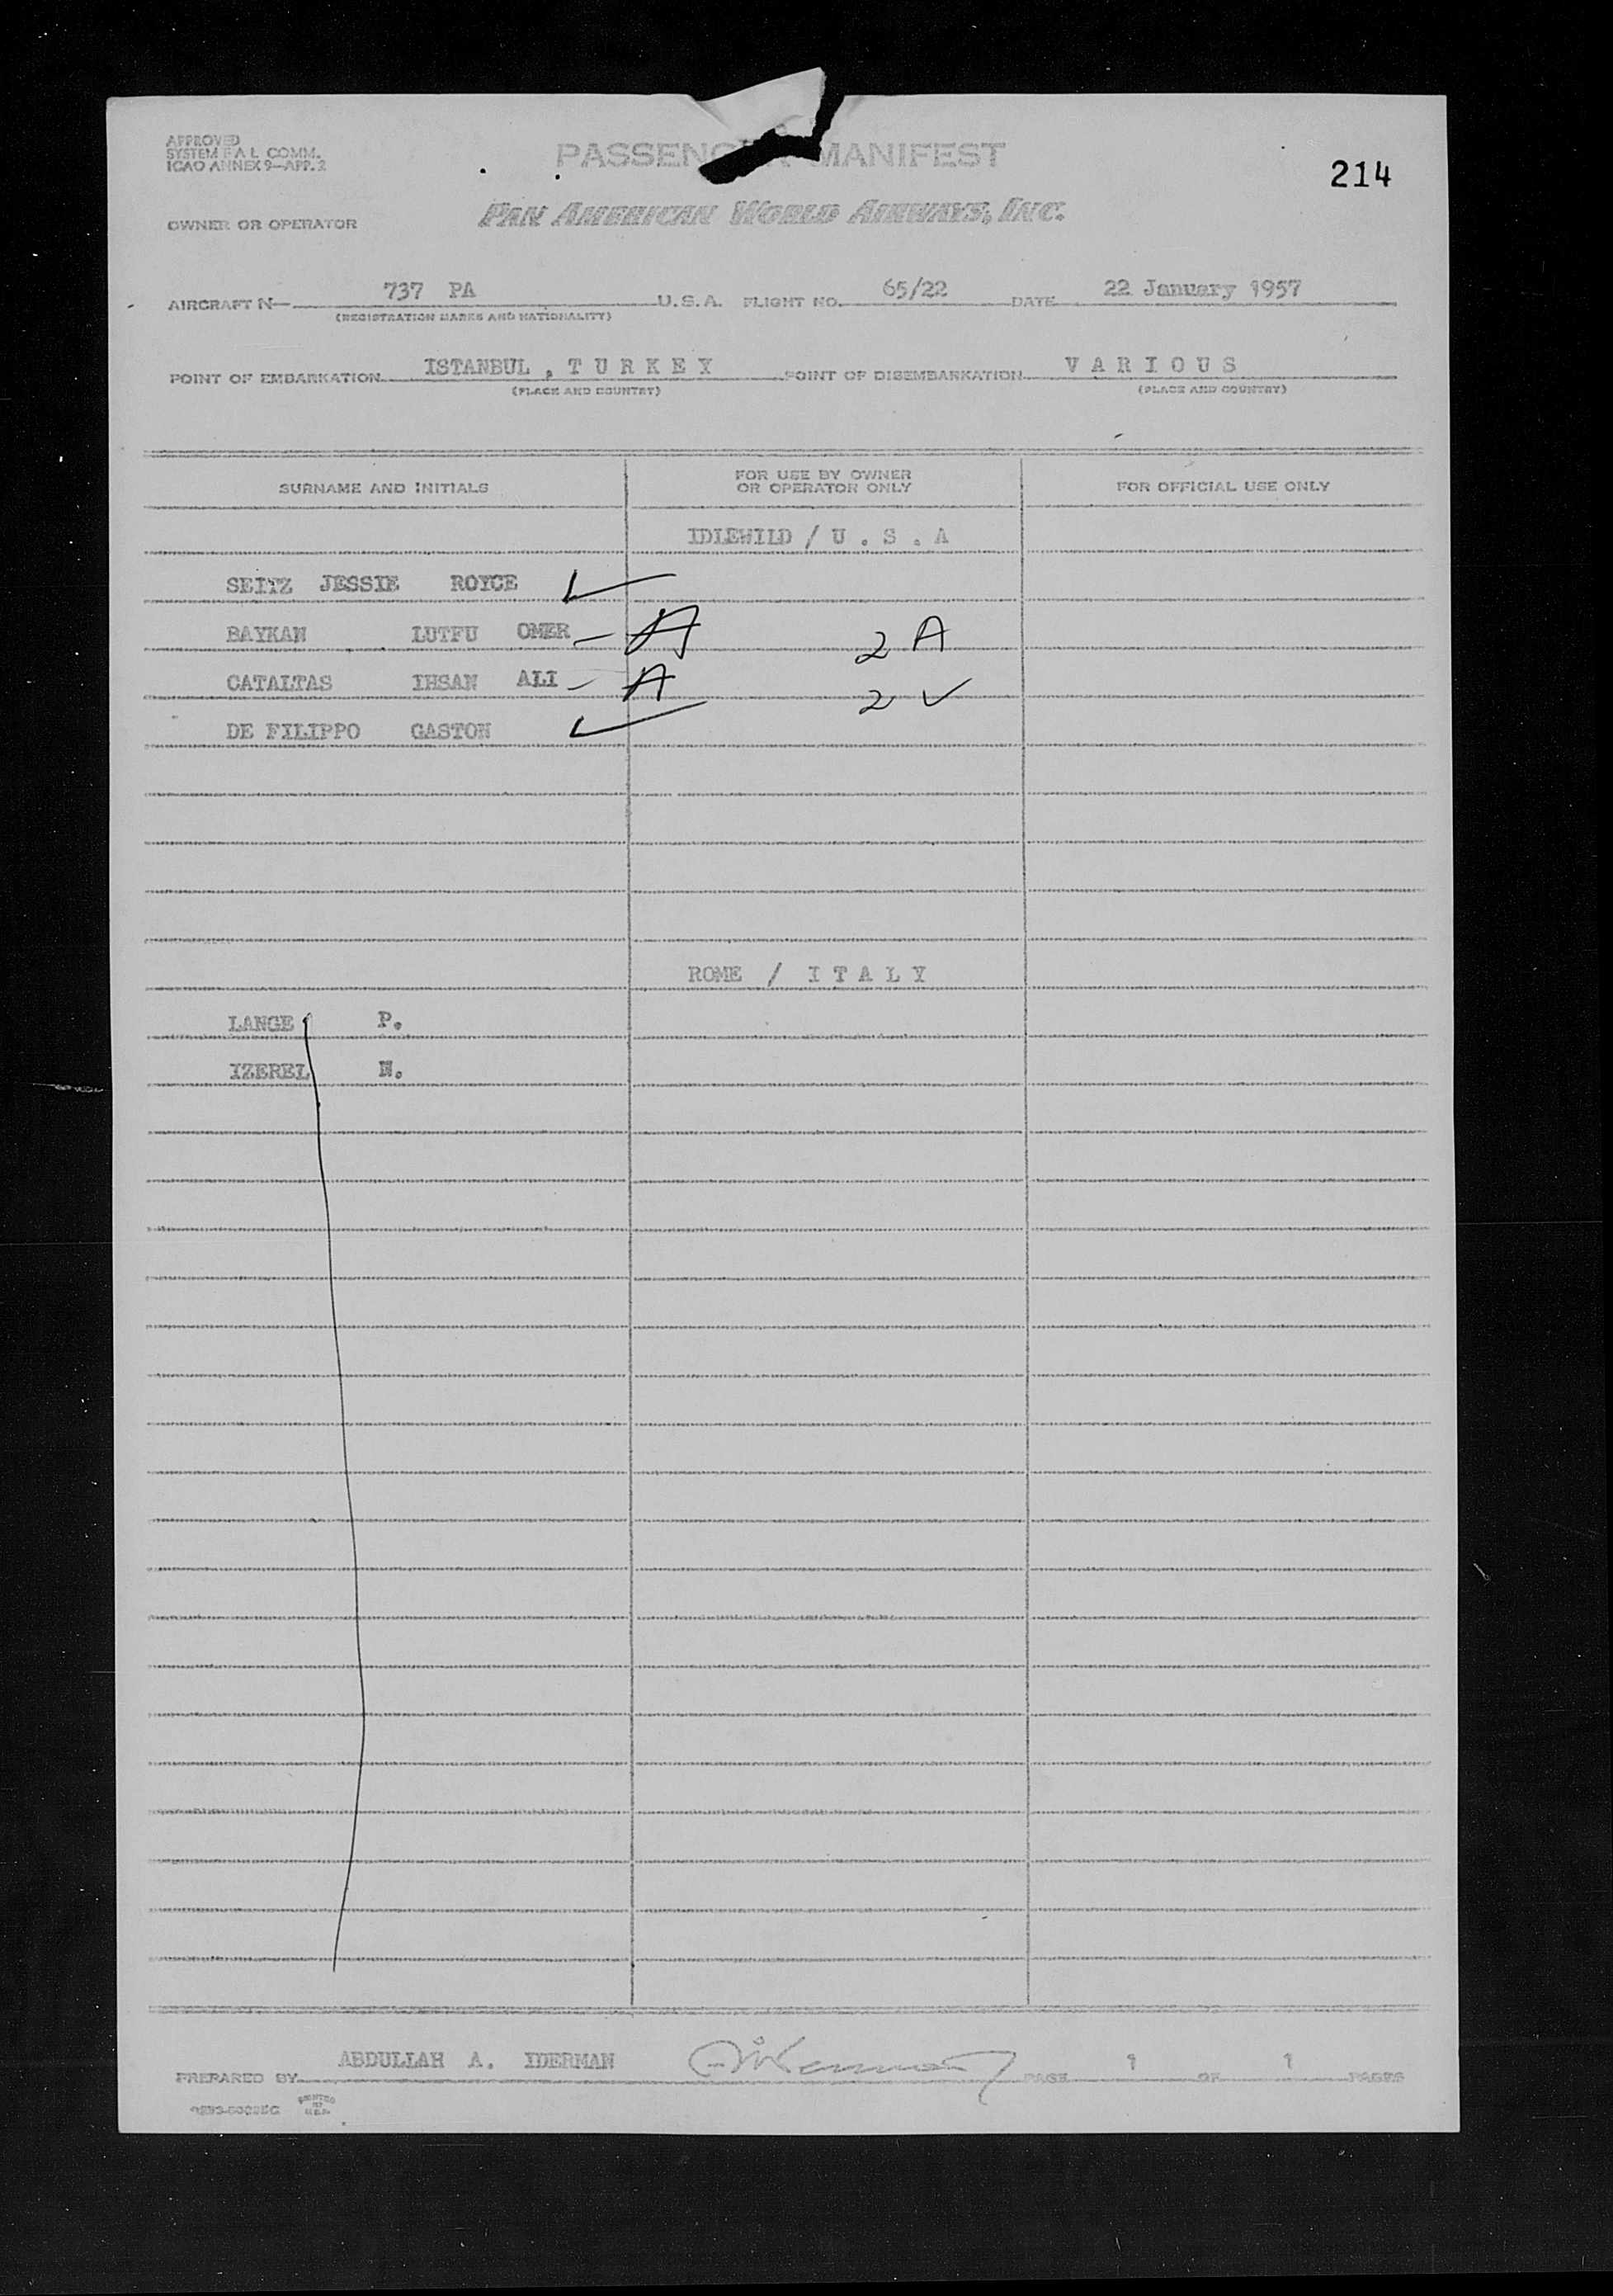 APPROVED
SYSTEM F A L COMM.
ICAO ANNEX 9—APP. 2
PASSENGER MANIFEST
214
OWNER OR OPERATOR
PAN AMERICAN WORLD AIRWAYS, INC.
AIRCRAFT N— 737 PA U.S.A. FLIGHT NO. 65/22 DATE 22 January 1957
(REGISTRATION MARKS AND NATIONALITY)
POINT OF EMBARKATION ISTANBUL , T U R K E Y POINT OF DISEMBARKATION V A R I O U S
(PLACE AND COUNTRY) (PLACE AND COUNTRY)
SURNAME AND INITIALS
FOR USE BY OWNER
OR OPERATOR ONLY
FOR OFFICIAL USE ONLY
IDLEWILD / U . S . A
SEITZ JESSIE ROYCE ✓
BAYKAN LUTFU OMER – A 2 A
CATALTAS IHSAN ALI – A 2 ✓
DE FILIPPO GASTON ✓
ROME / I T A L Y
LANGE P.
IZEREL N.
PREPARED BY ABDULLAH A. IDERMAN PAGE 1 OF 1 PAGES
PRINTED
IN
U.S.A.